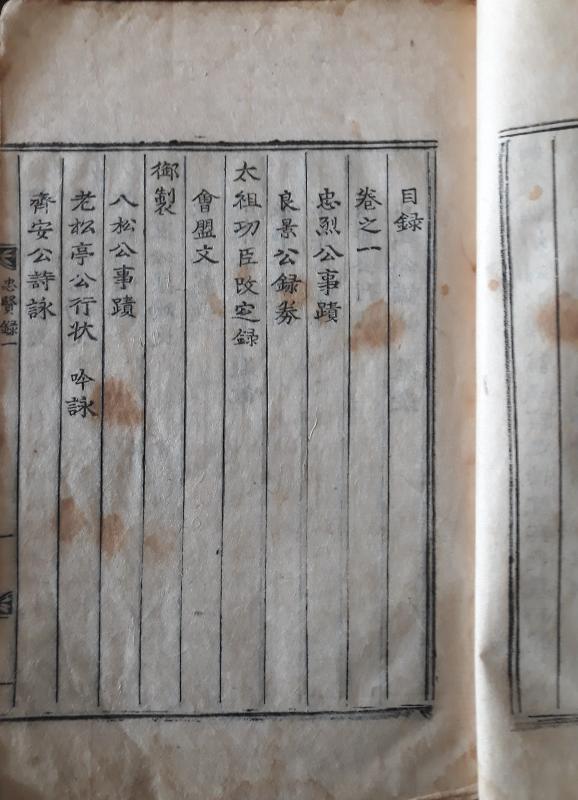 目録
卷之一
忠烈公事蹟
良景公録券
太祖功臣改定録
會盟文
御製
八松公事蹟
老松亭公行状 吟詠
齊安公詩詠
忠賢録一